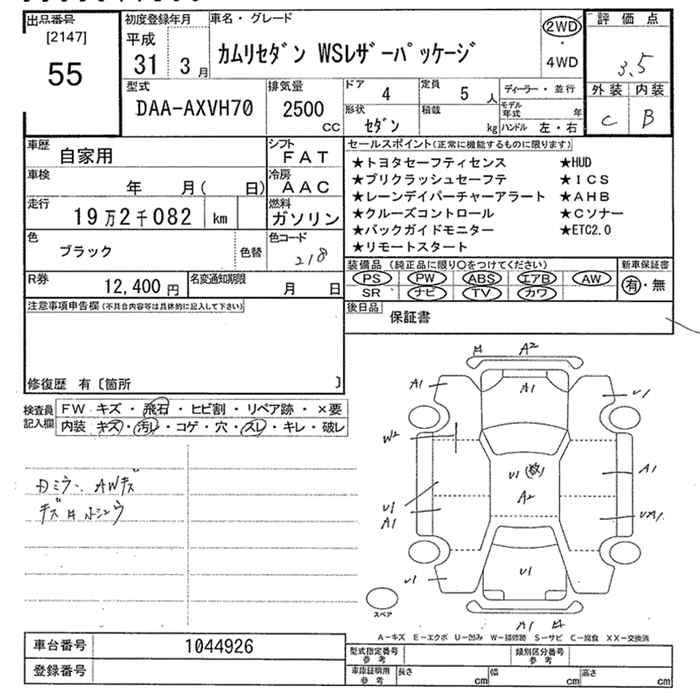 出品番号 初度登録年月 車名・グレード 2WD ・ 4WD 評価点
[2147] 平成
55 31 3月 カムリセダン WSレザーパッケージ 3.5
型式 排気量 ドア 4 定員 5人 ディーラー・並行 外装 内装
DAA-AXVH70 2500cc 形状 セダン 積載 kg モデル年式 年 ハンドル 左・右 C B
車歴 自家用 シフト FAT セールスポイント(正常に機能するものに限ります)
★トヨタセーフティセンス ★HUD
車検 年 月( 日) 冷房 AAC ★プリクラッシュセーフテ ★ICS
★レーンデイパーチャーアラート ★AHB
走行 19万2千082 km 燃料 ガソリン ★クルーズコントロール ★Cソナー
★バックガイドモニター ★ETC2.0
色 ブラック 色替 色コード 218 ★リモートスタート
R券 12,400円 名変通知期限 月 日 装備品(純正品に限り○をつけてください) 新車保証書
PS PW ABS エアB AW 有・無
SR ナビ TV カワ
注意事項申告欄(不具合内容等は具体的に記入して下さい) 後日品 保証書
修復歴 有〔箇所 〕
検査員記入欄 FW キズ・飛石・ヒビ割・リペア跡・×要
内装 キズ・汚レ・コゲ・穴・スレ・キレ・破レ
A2
A1 A1 U1
W2
U1 A1
A2
U1
A1
U1 U1
A1
スペア
A-キズ E-エクボ U-凹み W-補修跡 S-サビ C-腐食 XX-交換済
車台番号 1044926 型式指定番号 参考 類別区分番号 参考
登録番号 車庫証明用 参考 長さ cm 幅 cm 高さ cm